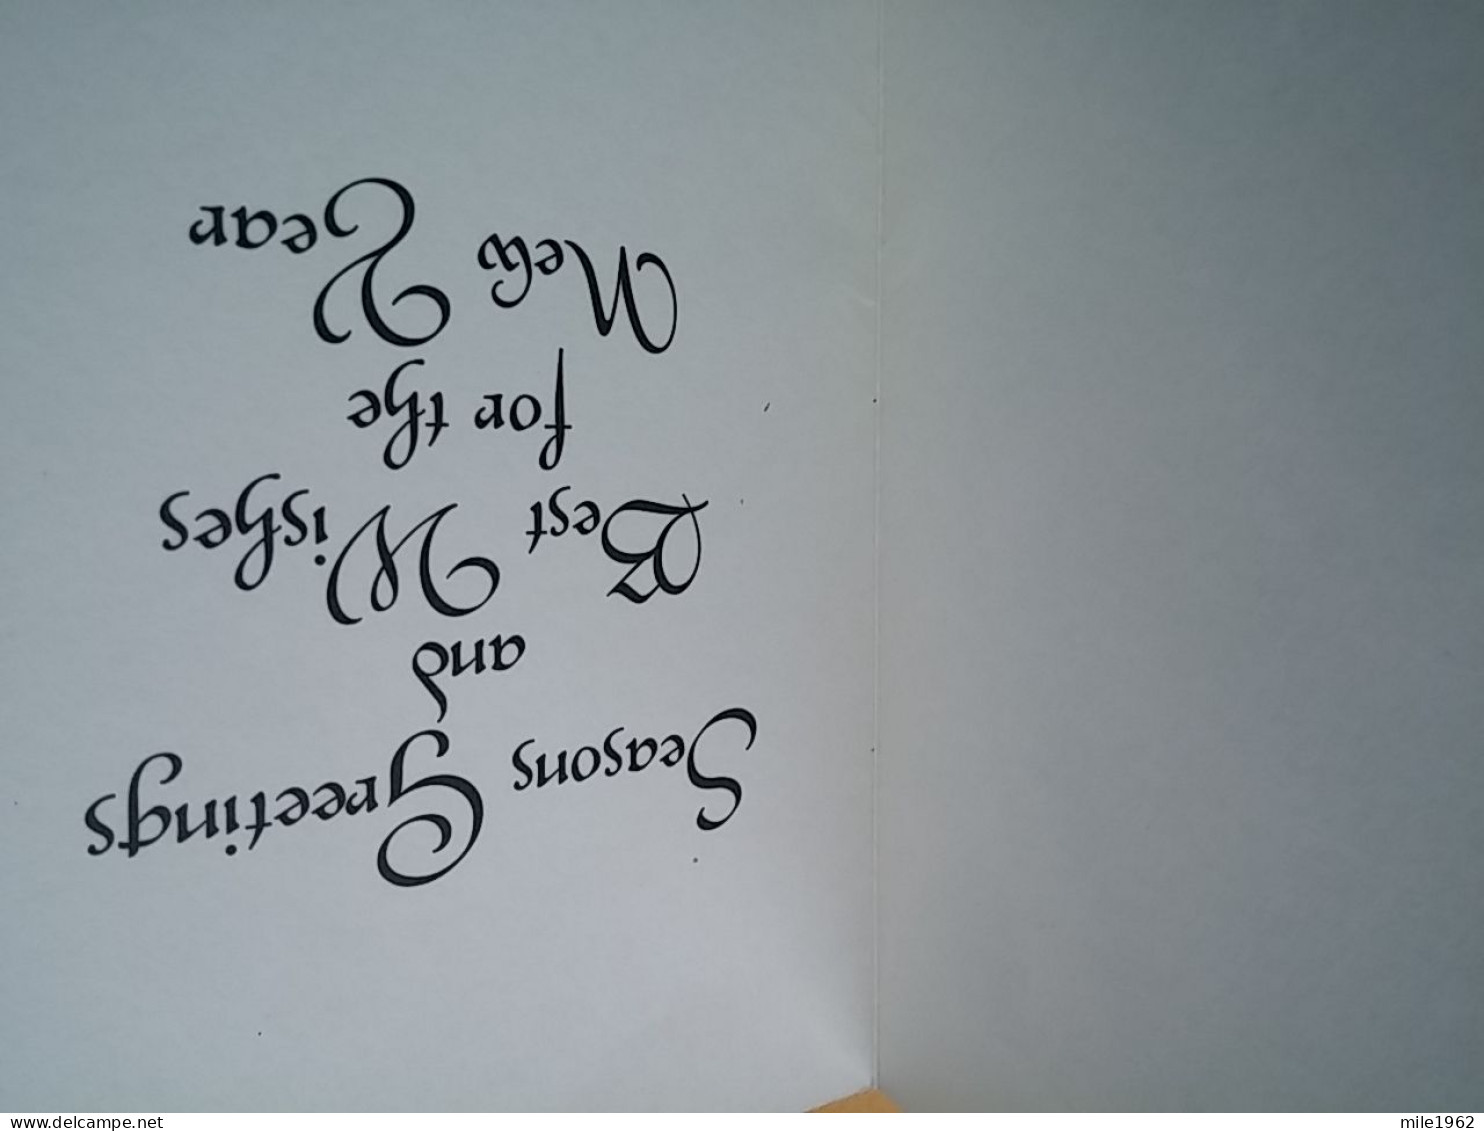 Seasons Greetings
and
Best Wishes
for the
New Year
www.delcampe.net
mile1962